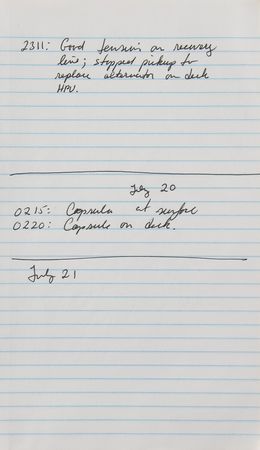 2311: Good tension on recovery
line; stopped pickup to
replace alternator on deck
HPU.
July 20
0215: Capsule at surface
0220: Capsule on deck.
July 21